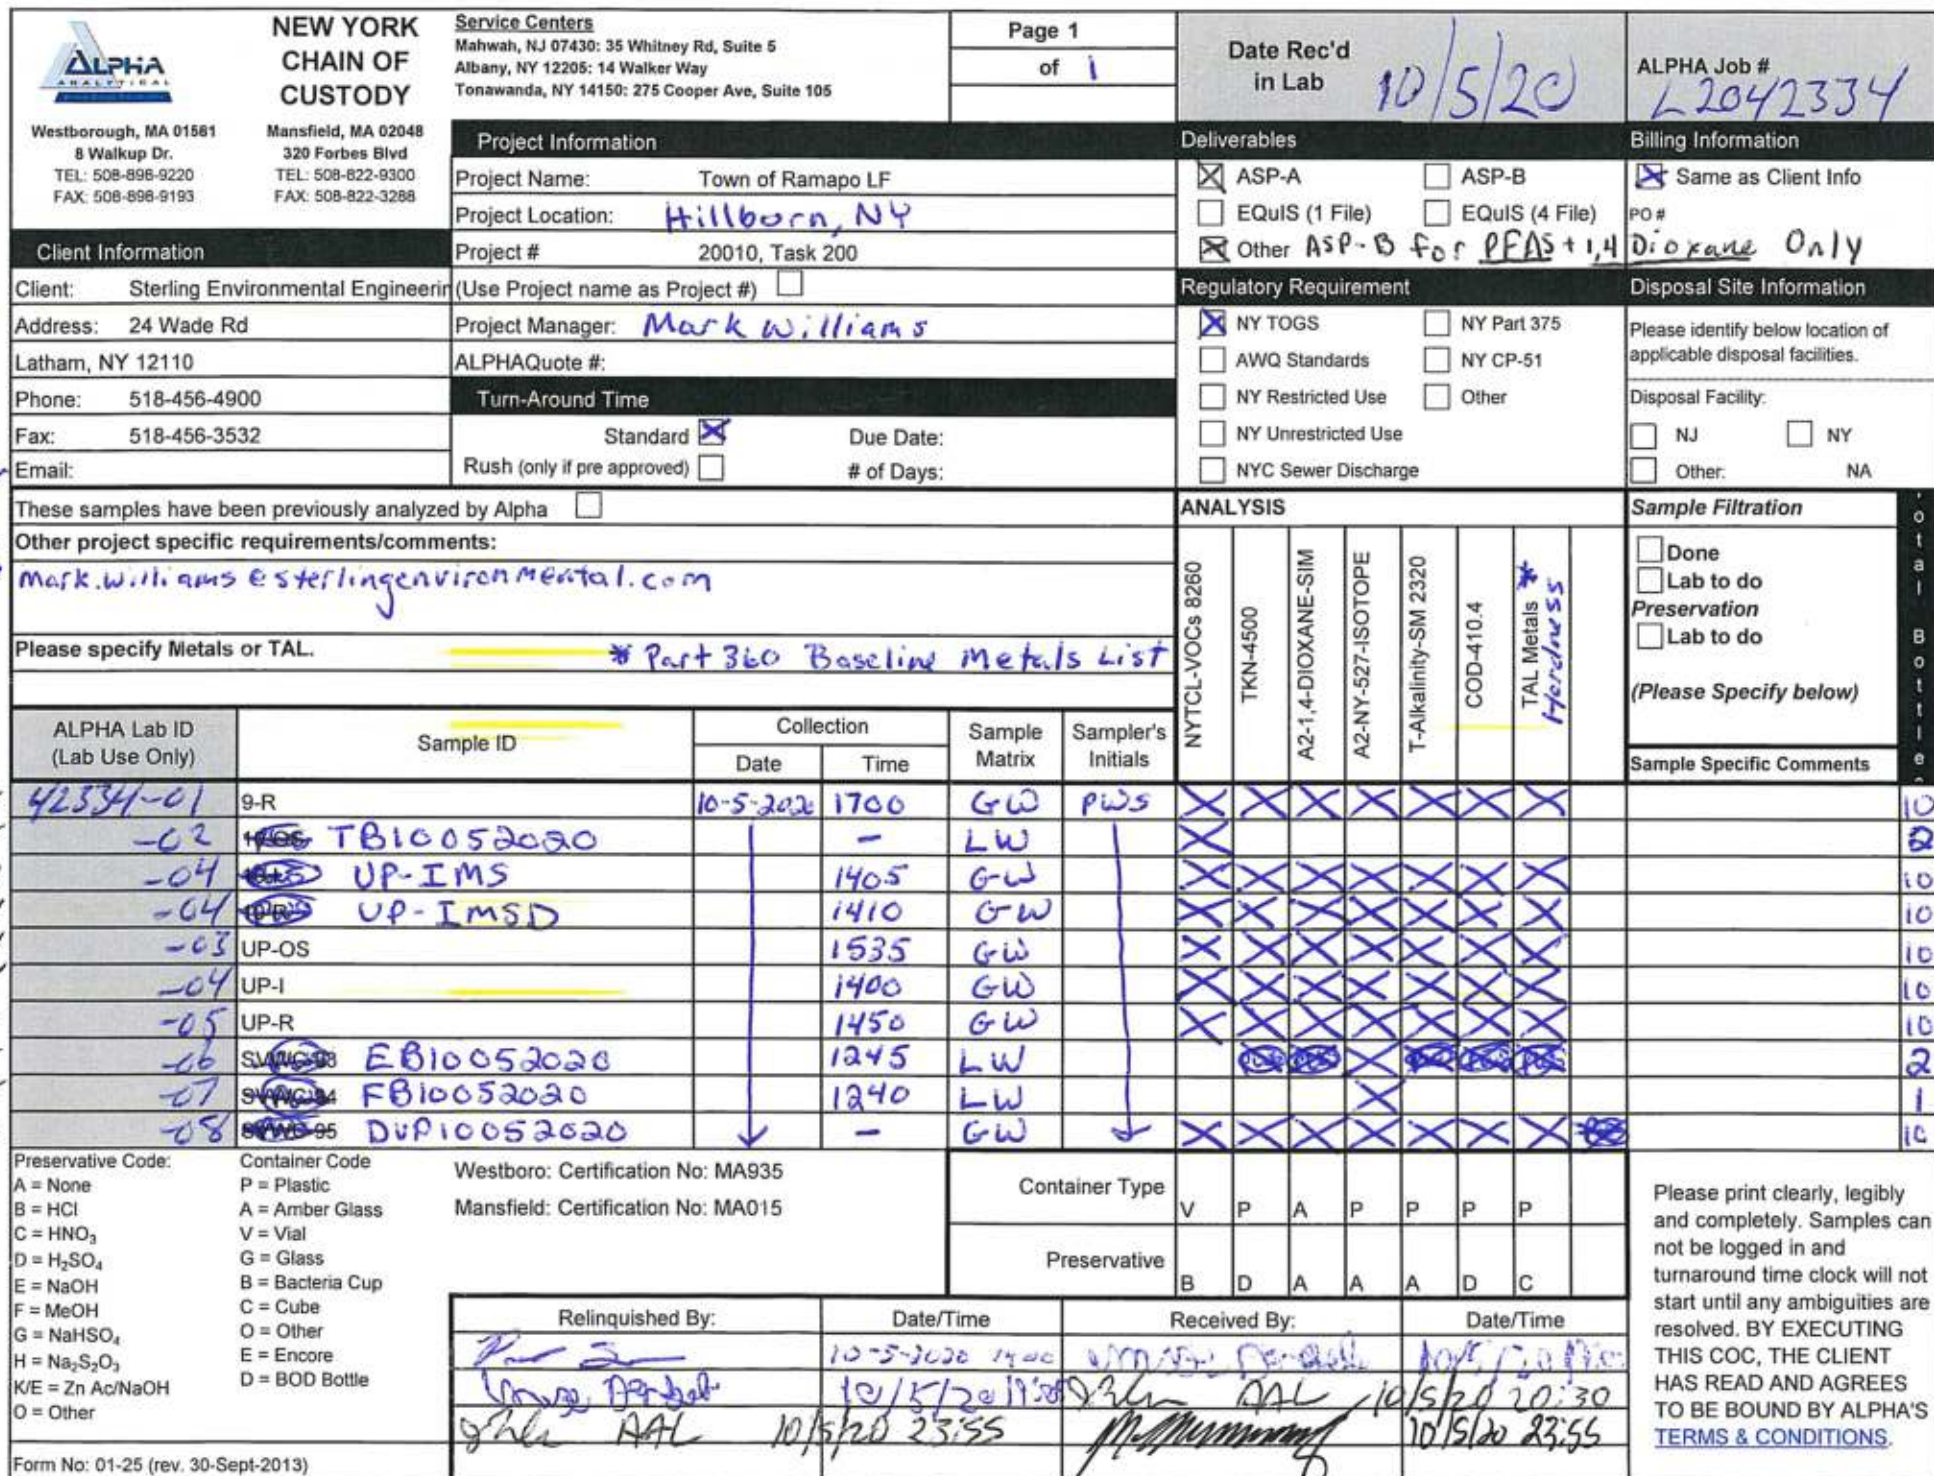 ALPHA
ANALYTICAL
NEW YORK
CHAIN OF
CUSTODY
Westborough, MA 01581
8 Walkup Dr.
TEL: 508-898-9220
FAX: 508-898-9193
Mansfield, MA 02048
320 Forbes Blvd
TEL: 508-822-9300
FAX: 508-822-3288
Service Centers
Mahwah, NJ 07430: 35 Whitney Rd, Suite 5
Albany, NY 12205: 14 Walker Way
Tonawanda, NY 14150: 275 Cooper Ave, Suite 105
Page 1
of 1
Date Rec'd
in Lab 10/5/20
ALPHA Job #
L2042334
Project Information
Project Name: Town of Ramapo LF
Project Location: Hillburn, NY
Project # 20010, Task 200
(Use Project name as Project #)
Project Manager: Mark Williams
ALPHAQuote #:
Turn-Around Time
Standard Due Date:
Rush (only if pre approved) # of Days:
Client Information
Client: Sterling Environmental Engineerin
Address: 24 Wade Rd
Latham, NY 12110
Phone: 518-456-4900
Fax: 518-456-3532
Email:
Deliverables
ASP-A ASP-B
EQuIS (1 File) EQuIS (4 File)
Other ASP-B for PFAS + 1,4 Dioxane Only
Billing Information
Same as Client Info
PO #
Regulatory Requirement
NY TOGS NY Part 375
AWQ Standards NY CP-51
NY Restricted Use Other
NY Unrestricted Use
NYC Sewer Discharge
Disposal Site Information
Please identify below location of
applicable disposal facilities.
Disposal Facility:
NJ NY
Other: NA
These samples have been previously analyzed by Alpha
Other project specific requirements/comments:
mark.williams@sterlingenvironmental.com
Please specify Metals or TAL.
* Part 360 Baseline Metals List
ANALYSIS
NYTCL-VOCs 8260
TKN-4500
A2-1,4-DIOXANE-SIM
A2-NY-527-ISOTOPE
T-Alkalinity-SM 2320
COD-410.4
TAL Metals *
Hardness
Sample Filtration
Done
Lab to do
Preservation
Lab to do
(Please Specify below)
Sample Specific Comments
otal Bottle
ALPHA Lab ID
(Lab Use Only)
Sample ID
Collection
Date Time
Sample
Matrix
Sampler's
Initials
42334-01 9-R 10-5-2020 1700 GW PWS X X X X X X X 10
-02 TB10052020 - LW X 2
-04 UP-IMS 1405 GW X X X X X X X 10
-04 UP-IMSD 1410 GW X X X X X X X 10
-03 UP-OS 1535 GW X X X X X X X 10
-04 UP-I 1400 GW X X X X X X X 10
-05 UP-R 1450 GW X X X X X X X 10
-06 EB10052020 1245 LW X 2
-07 FB10052020 1240 LW X 1
-08 DUP10052020 - GW X X X X X X X 10
Preservative Code:
A = None
B = HCl
C = HNO₃
D = H₂SO₄
E = NaOH
F = MeOH
G = NaHSO₄
H = Na₂S₂O₃
K/E = Zn Ac/NaOH
O = Other
Container Code
P = Plastic
A = Amber Glass
V = Vial
G = Glass
B = Bacteria Cup
C = Cube
O = Other
E = Encore
D = BOD Bottle
Westboro: Certification No: MA935
Mansfield: Certification No: MA015
Container Type V P A P P P P
Preservative B D A A A D C
Relinquished By: Date/Time Received By: Date/Time
10-5-2020
10/5/20 AAL 10/5/20 20:30
AAL 10/5/20 23:55 10/5/20 23:55
Please print clearly, legibly
and completely. Samples can
not be logged in and
turnaround time clock will not
start until any ambiguities are
resolved. BY EXECUTING
THIS COC, THE CLIENT
HAS READ AND AGREES
TO BE BOUND BY ALPHA'S
TERMS & CONDITIONS.
Form No: 01-25 (rev. 30-Sept-2013)